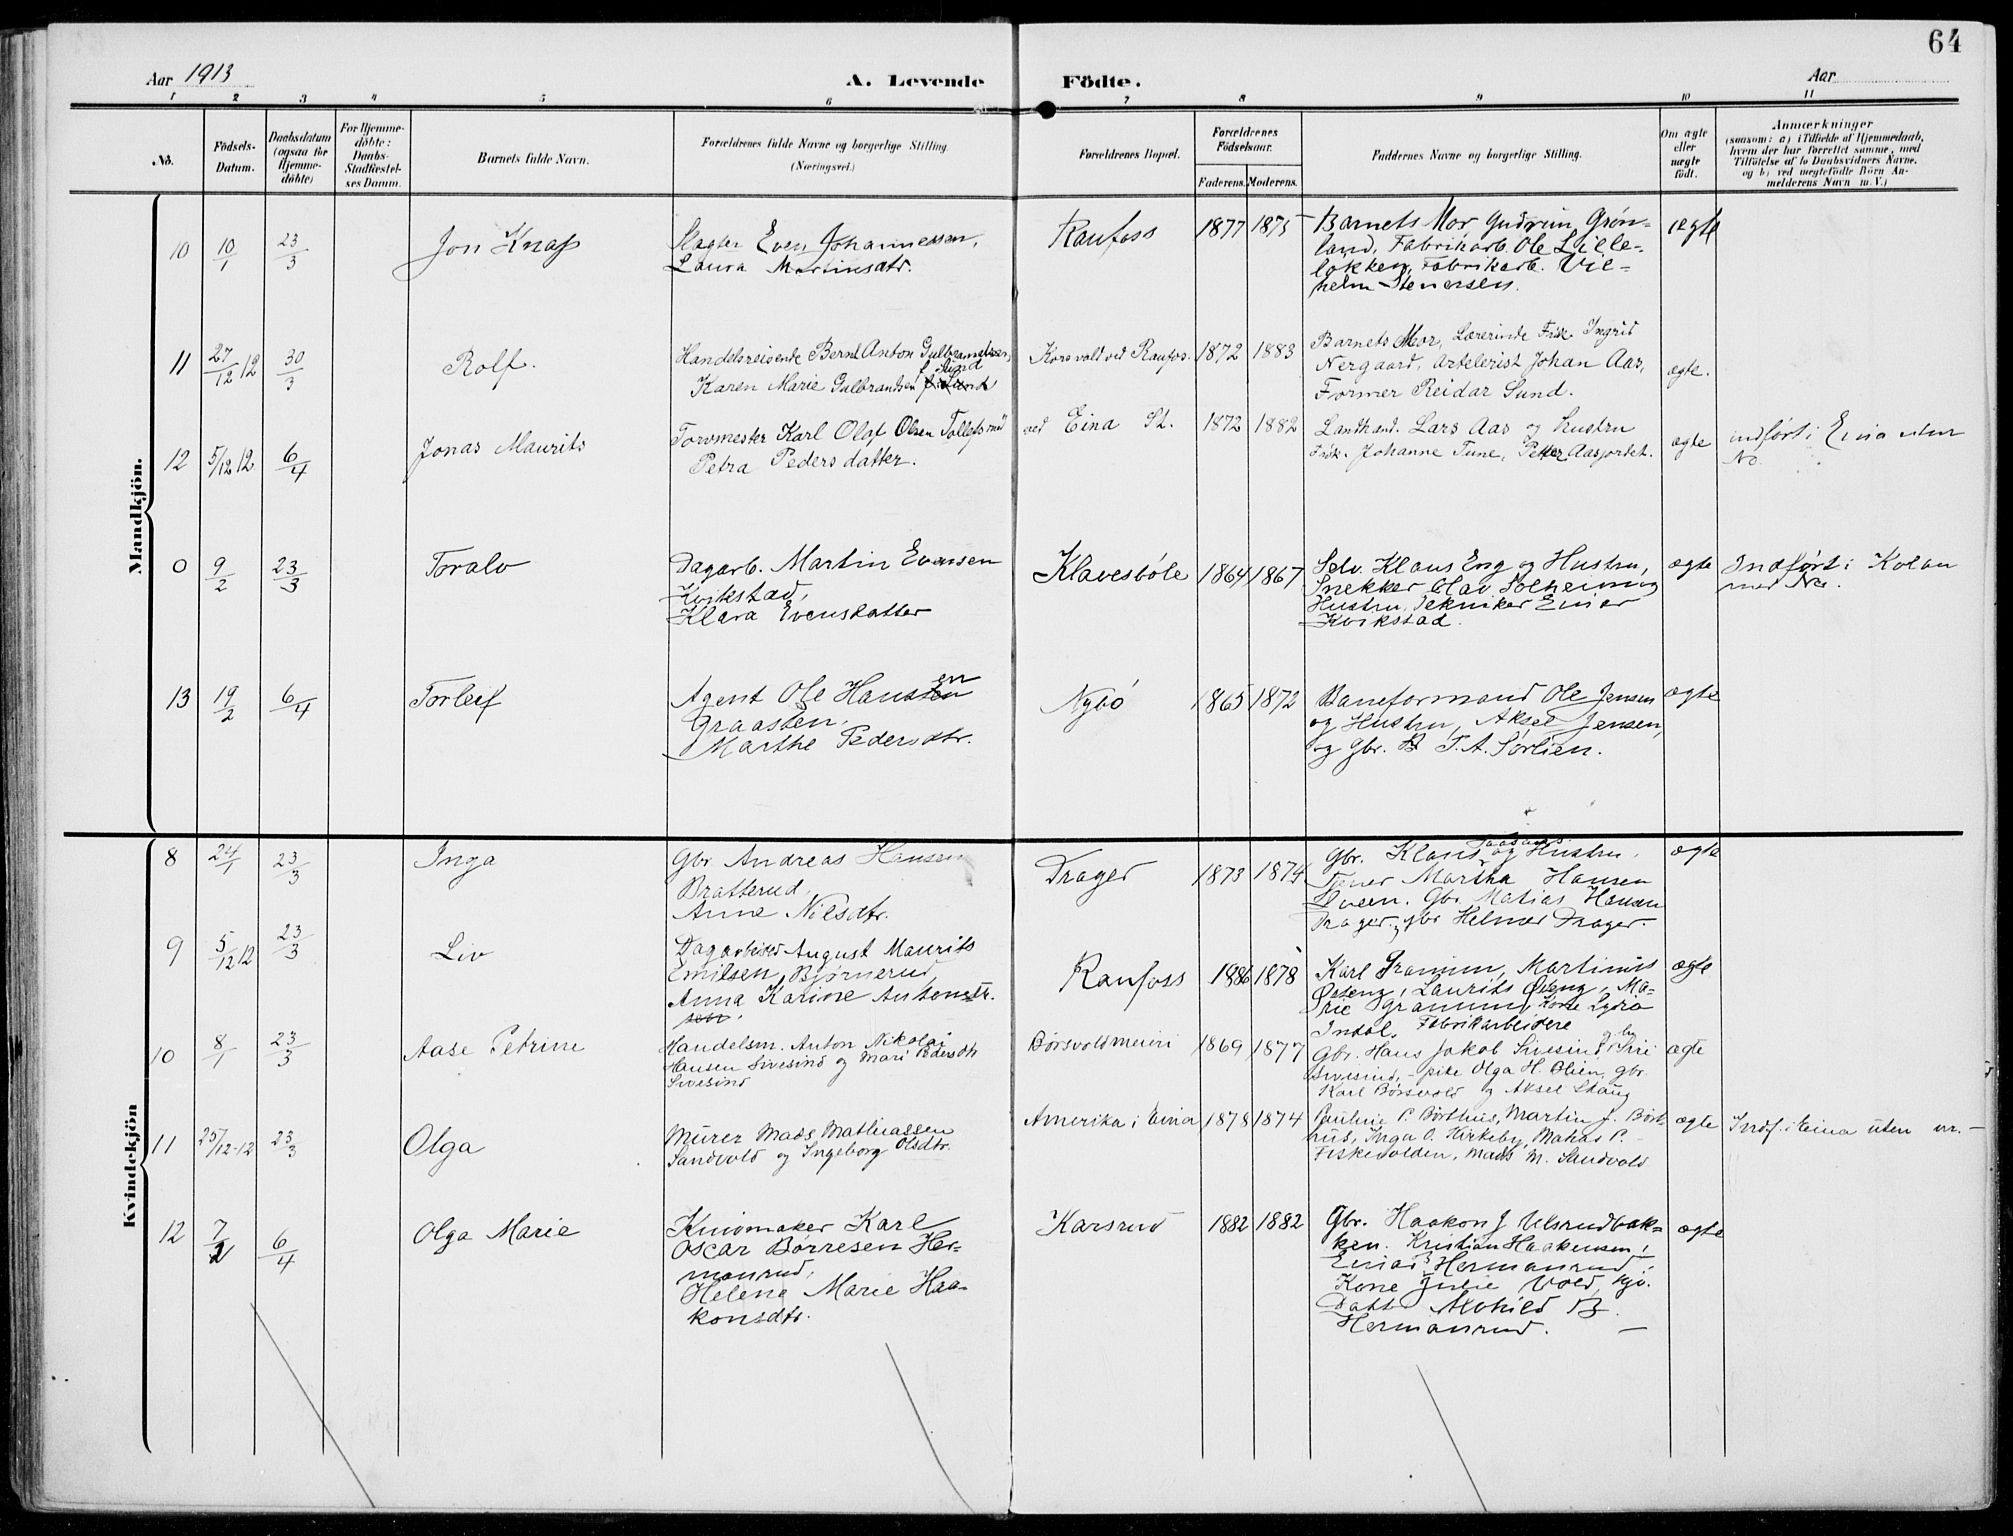 64
Aar 1913
A. Levende Födte.
Aar
1 2 3 4 5 6 7 8 9 10 11
No.
Födsels-
Datum.
Daabsdatum
(ogsaa for
Hjemme-
döbte)
For Hjemme-
döbte:
Daabs-
Stadfæstel-
ses Datum.
Barnets fulde Navn.
Forældrenes fulde Navne og borgerlige Stilling
(Næringsvei.)
Forældrenes Bopæl.
Forældrenes
Födselsaar.
Faderens. Moderens.
Faddernes Navne og borgerlige Stilling.
Om ægte
eller
uægte
födt.
Anmærkninger
(saasom: a) i Tilfælde af Hjemmedaab,
hvem der har forrettet samme, med
Tilföielse af to Daabsvidners Navne.
og b) ved uegtefödte Börn An-
melderens Navn m. V.)
Mandkjön.
10 10/1 23/3 Jon Knap
Slagter Even Johannessen,
Laura Martinsdtr.
Raufoss 1877 1875
Barnets Mor Gudrun Grøn-
land, Fabrikarb. Ole Lille-
løkken, Fabrikarb. Vil-
helm Stenersen.
ægte
11 27/12 12 30/3 Rolf.
Handelsreisende Bernt Anton Gulbrandsen
Sund
Karen Marie Gulbrandsen
Korsvold ved Raufos. 1872 1883
Barnets Mor, Lærerinde Frk Ingrid
Nergaard, Artelerist Johan Aas,
Former Reidar Sund.
ægte.
12 5/12 12 6/4 Jonas Maurits
Torvmester Karl Olaf Olsen
Petra Pedersdatter.
ved Eina St. 1872 1882
Landhand. Lars Aas og hustru
Frøk. Johanne Tune, Petter Aasjordet.
ægte
indført i Eina uten
No.
0 9/2 23/3 Toralv
Dagarb. Martin Evensen
Kvikstad,
Klara Evensdatter
Klavesböle 1864 1867
Selv. Klaus Eng og Hustru,
Snekker Olav Solheim og
Hustru, Tekniker Einar
Kvikstad.
ægte
Indført i Kolbu
med No.
13 19/2 6/4 Torleif
Agent Ole Hansen
Graasten,
Marthe Pedersdtr.
Nybö 1865 1872
Baneformand Ole Jensen
og Hustru, Aksel Jensen,
og Gbr. T. A. Sørlien.
ægte
Kvindekjön
8 24/1 23/3 Inga
Gbr Andreas Hansen
Bratterud,
Anne Nilsdtr.
Drager 1873 1874
Gbr. Klaus og Hustru,
Tjener Martha Hansen
Sveen. Gbr Matias Hansen
Drager, gbr Helmer Drager.
ægte
9 5/12 12 23/3 Liv
Dagarbeider August Maurits
Emilsen Bjørnerud,
Anna Karine Antonsdtr.
Raufoss 1886 1878
Karl Granum, Martinus
Østeng, Laurits Østeng, Ma-
rie Granum, Kone Lydia
Indal. Fabrikarbeidere
ægte
10 8/1 23/3 Aase Petrine
Handelsm. Anton Nikolai
Hansen Sivesind og Mari Pedersdtr
Sivesind
Börsvoldmeieri 1869 1877
Gbr. Hans Jakob Sivesind, Siri
Sivesind, - pike Olga H. Olsen, gbr.
Karl Børsvold og Aksel Skaug
ægte
11 25/12-12 23/3 Olga
Murer Mads Mathiassen
Sandvold og Ingeborg Olsdtr.
Amerika i Eina 1878 1874
Pauline P. Børthus, Martin J. Bört-
hus, Inga O. Kirkeby, Mahas P.
Fiskevolden, Mads M. Sandvold
ægte
Indf. i Eina uten nr. —
12 7/2 6/4 Olga Marie
Knivmaker Karl
Oscar Børresen Her-
manrud,
Helene Marie Haa-
konsdtr.
Karsrud 1882 1882
Gbr. Haakon J Ulsrudbak-
ken. Kristian Haakensen,
Einar Hermanrud,
Kone Julie Vold, gr.
Datt. Alvhild B.
Hermanrud. —
ægte